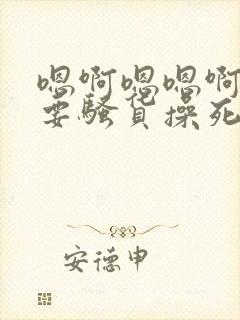 嗯啊嗯嗯啊
要骚货操死
安德申